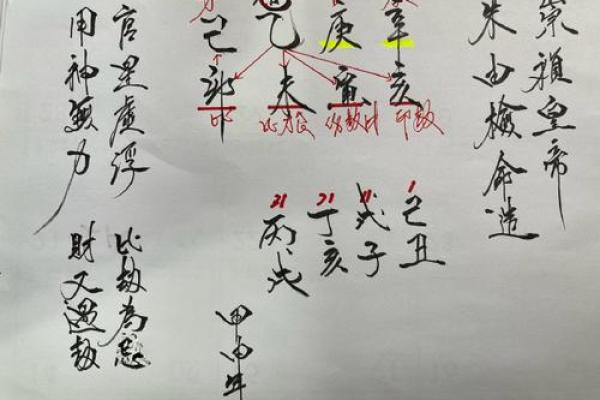 崇禎皇帝
朱由檢命造
辛亥
印劫
庚寅
乙未
己卯
1 己丑
11 戊子
21 丁亥
31 丙戌
甲申年
官星虛浮 比劫為忌
用神無力 財又遇劫